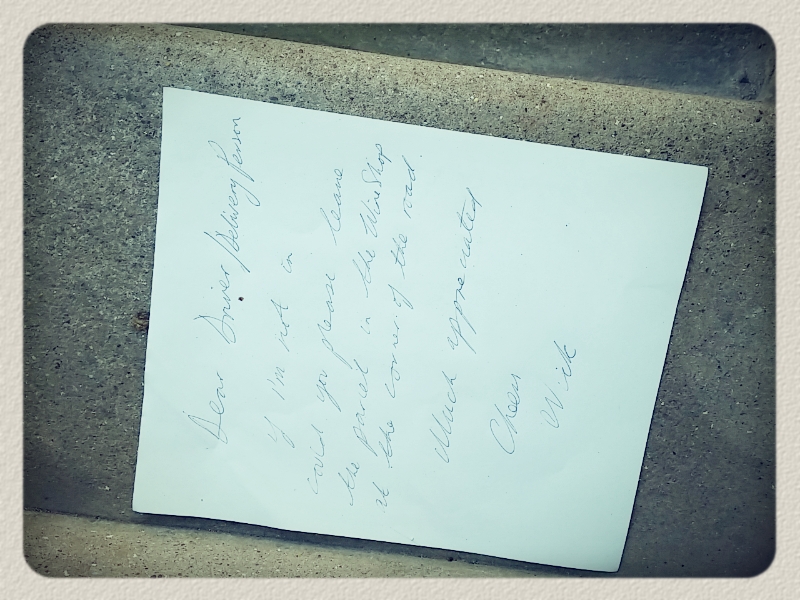 Dear Driver/Delivery Person
if I'm not in
could you please leave
the parcel in the Wine Shop
at the corner of the road.
Much appreciated
Cheers